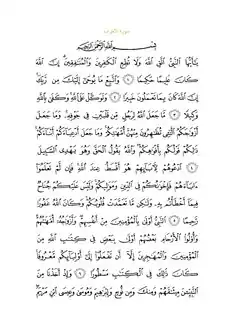 سورة الأحزاب
بِسْمِ ٱللَّهِ ٱلرَّحْمَٰنِ ٱلرَّحِيمِ
يَٰٓأَيُّهَا ٱلنَّبِىُّ ٱتَّقِ ٱللَّهَ وَلَا تُطِعِ ٱلْكَٰفِرِينَ وَٱلْمُنَٰفِقِينَ إِنَّ ٱللَّهَ
كَانَ عَلِيمًا حَكِيمًا ١ وَٱتَّبِعْ مَا يُوحَىٰٓ إِلَيْكَ مِن رَّبِّكَ
إِنَّ ٱللَّهَ كَانَ بِمَا تَعْمَلُونَ خَبِيرًا ٢ وَتَوَكَّلْ عَلَى ٱللَّهِ وَكَفَىٰ بِٱللَّهِ
وَكِيلًا ٣ مَّا جَعَلَ ٱللَّهُ لِرَجُلٍ مِّن قَلْبَيْنِ فِى جَوْفِهِۦ وَمَا جَعَلَ
أَزْوَٰجَكُمُ ٱلَّٰٓـِٔى تُظَٰهِرُونَ مِنْهُنَّ أُمَّهَٰتِكُمْ وَمَا جَعَلَ أَدْعِيَآءَكُمْ أَبْنَآءَكُمْ
ذَٰلِكُمْ قَوْلُكُم بِأَفْوَٰهِكُمْ وَٱللَّهُ يَقُولُ ٱلْحَقَّ وَهُوَ يَهْدِى ٱلسَّبِيلَ
٤ ٱدْعُوهُمْ لِءَابَآئِهِمْ هُوَ أَقْسَطُ عِندَ ٱللَّهِ فَإِن لَّمْ تَعْلَمُوٓا۟
ءَابَآءَهُمْ فَإِخْوَٰنُكُمْ فِى ٱلدِّينِ وَمَوَٰلِيكُمْ وَلَيْسَ عَلَيْكُمْ جُنَاحٌ
فِيمَآ أَخْطَأْتُم بِهِۦ وَلَٰكِن مَّا تَعَمَّدَتْ قُلُوبُكُمْ وَكَانَ ٱللَّهُ غَفُورًا
رَّحِيمًا ٥ ٱلنَّبِىُّ أَوْلَىٰ بِٱلْمُؤْمِنِينَ مِنْ أَنفُسِهِمْ وَأَزْوَٰجُهُۥٓ أُمَّهَٰتُهُمْ
وَأُو۟لُوا۟ ٱلْأَرْحَامِ بَعْضُهُمْ أَوْلَىٰ بِبَعْضٍ فِى كِتَٰبِ ٱللَّهِ مِنَ
ٱلْمُؤْمِنِينَ وَٱلْمُهَٰجِرِينَ إِلَّآ أَن تَفْعَلُوٓا۟ إِلَىٰٓ أَوْلِيَآئِكُم مَّعْرُوفًا
كَانَ ذَٰلِكَ فِى ٱلْكِتَٰبِ مَسْطُورًا ٦ وَإِذْ أَخَذْنَا مِنَ
ٱلنَّبِيِّۦنَ مِيثَٰقَهُمْ وَمِنكَ وَمِن نُّوحٍ وَإِبْرَٰهِيمَ وَمُوسَىٰ وَعِيسَى ٱبْنِ مَرْيَمَ